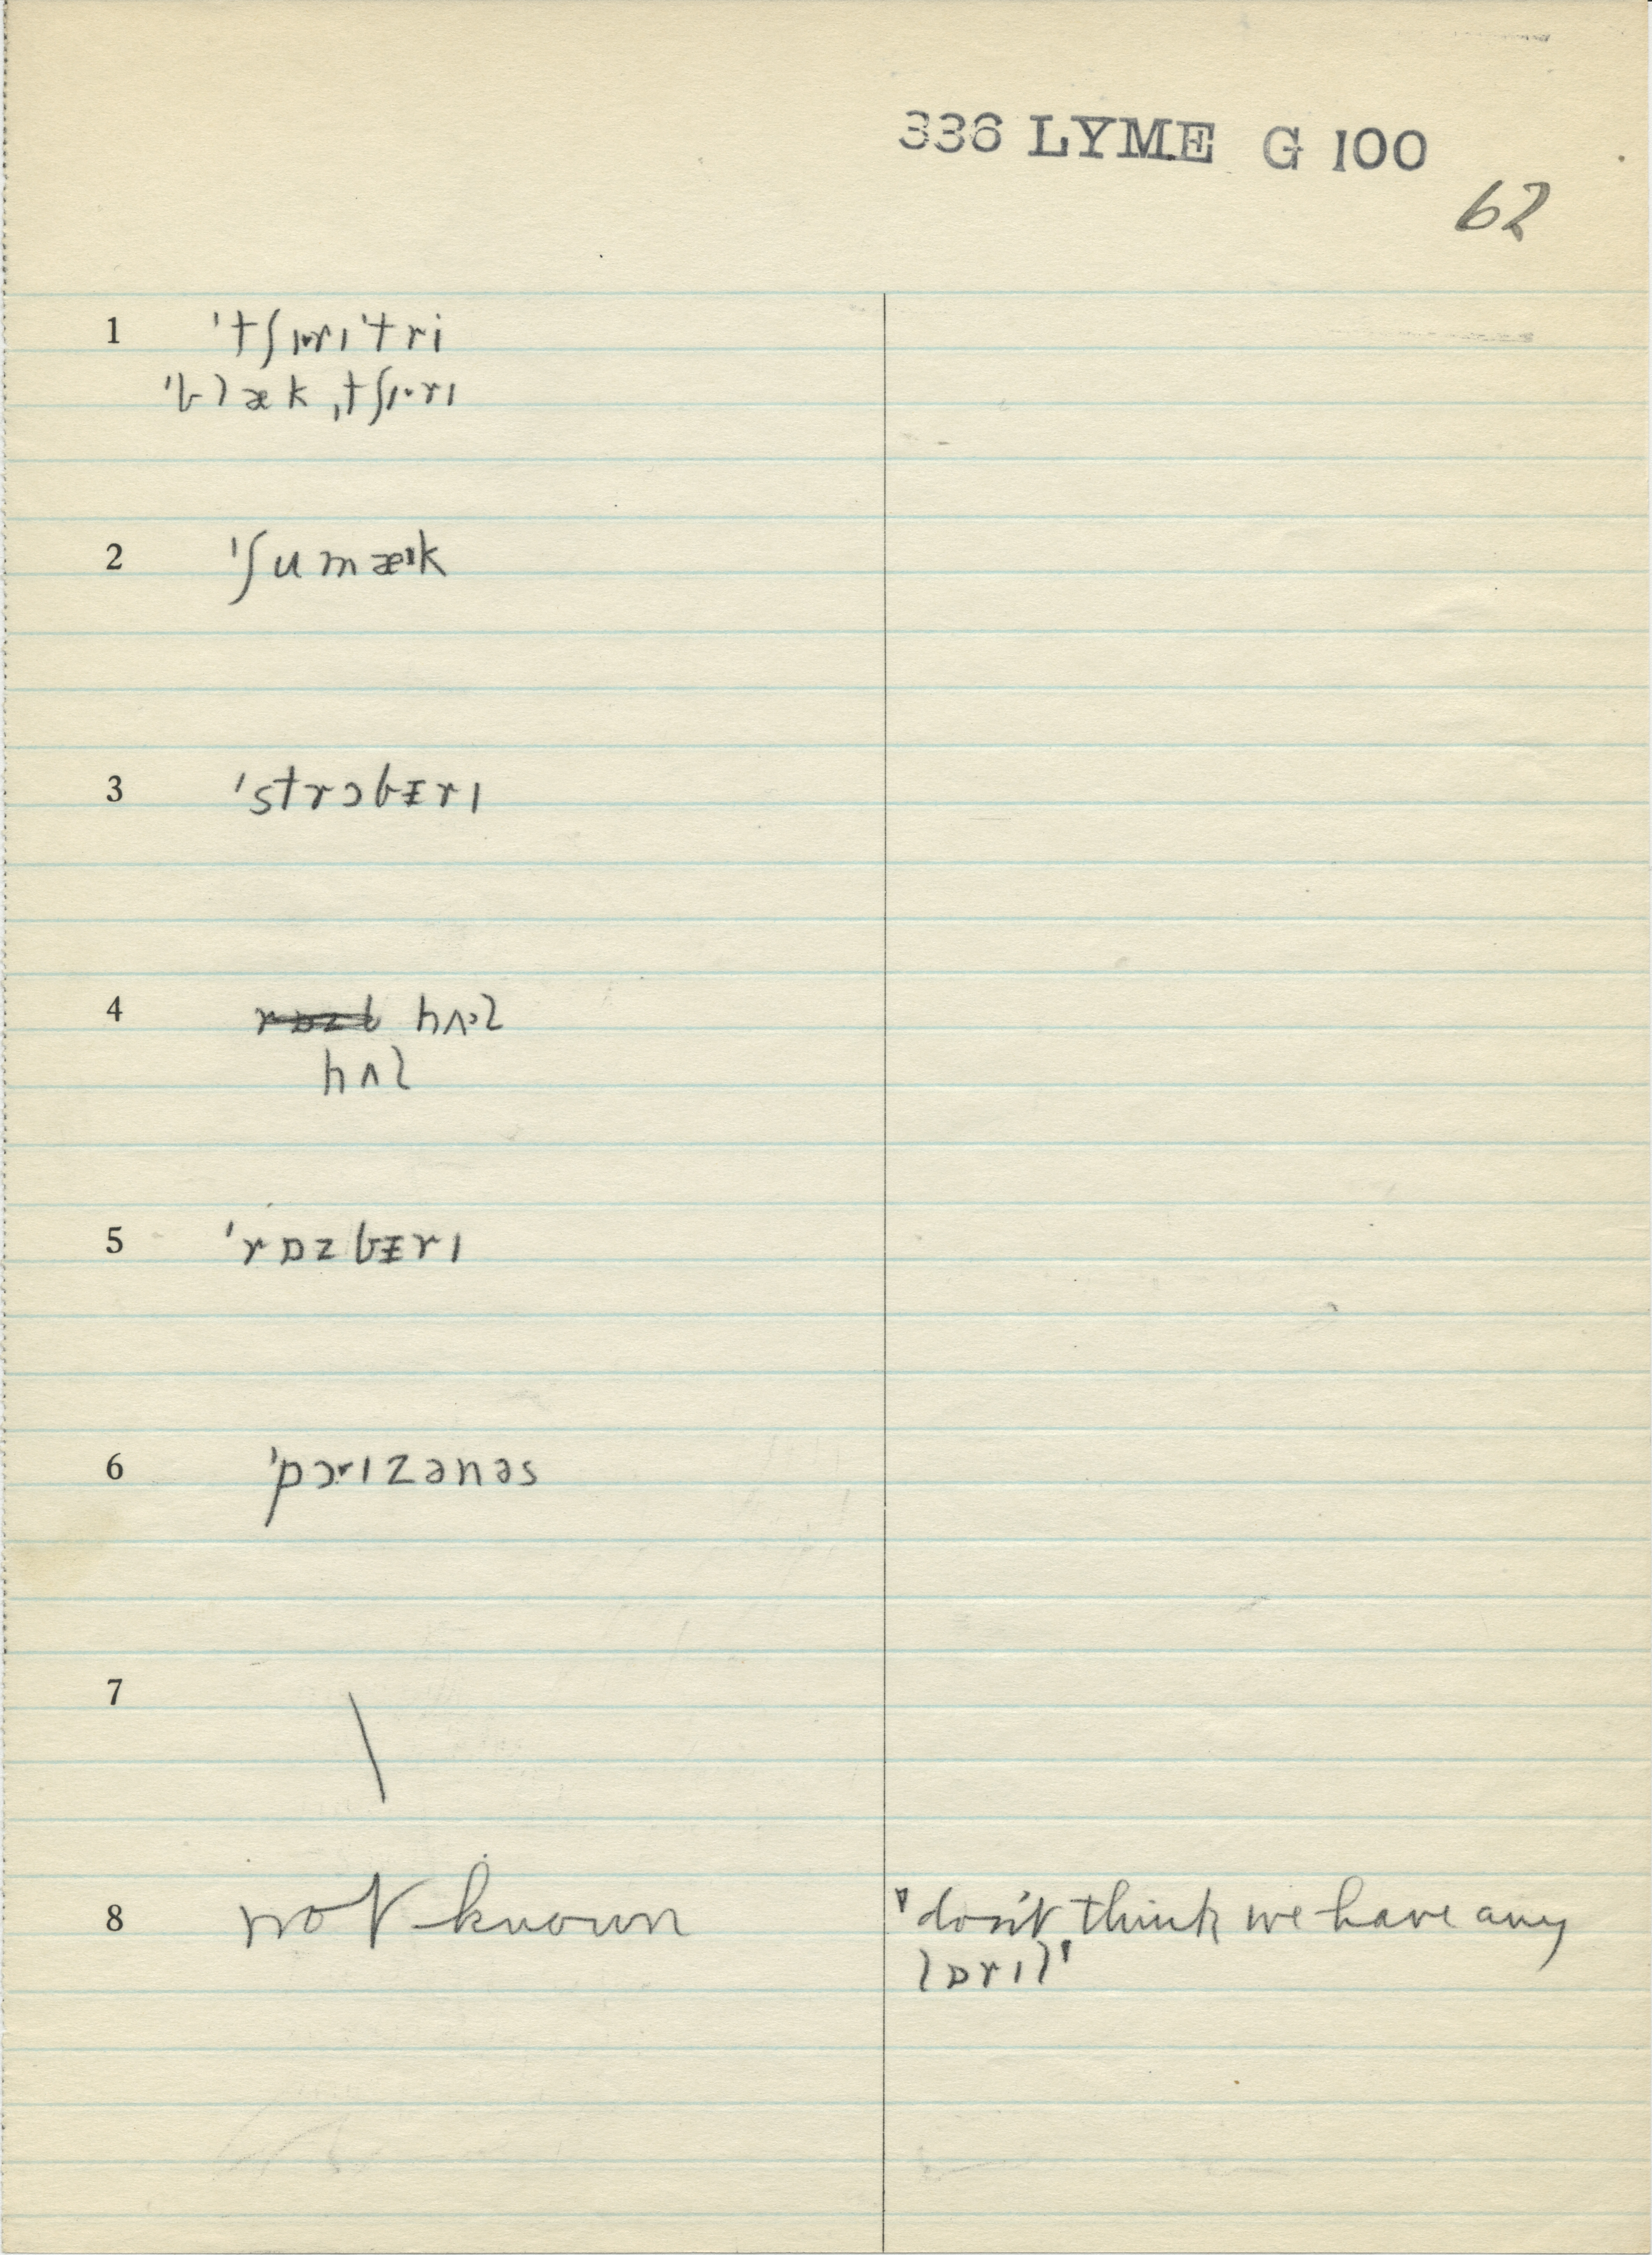 336 LYME G 100
62
1 'tʃɪ·rɪ'tri
'blæk ˌtʃɪ·rɪ
2 'ʃumæ·k
3 'strɔbɪrɪ
4 hʌ·l
hʌl
5 'rɒzbɪrɪ
6 'pɔ·ɪzənəs
7 \
8 not known "don't think we have any
lɒrɪl"